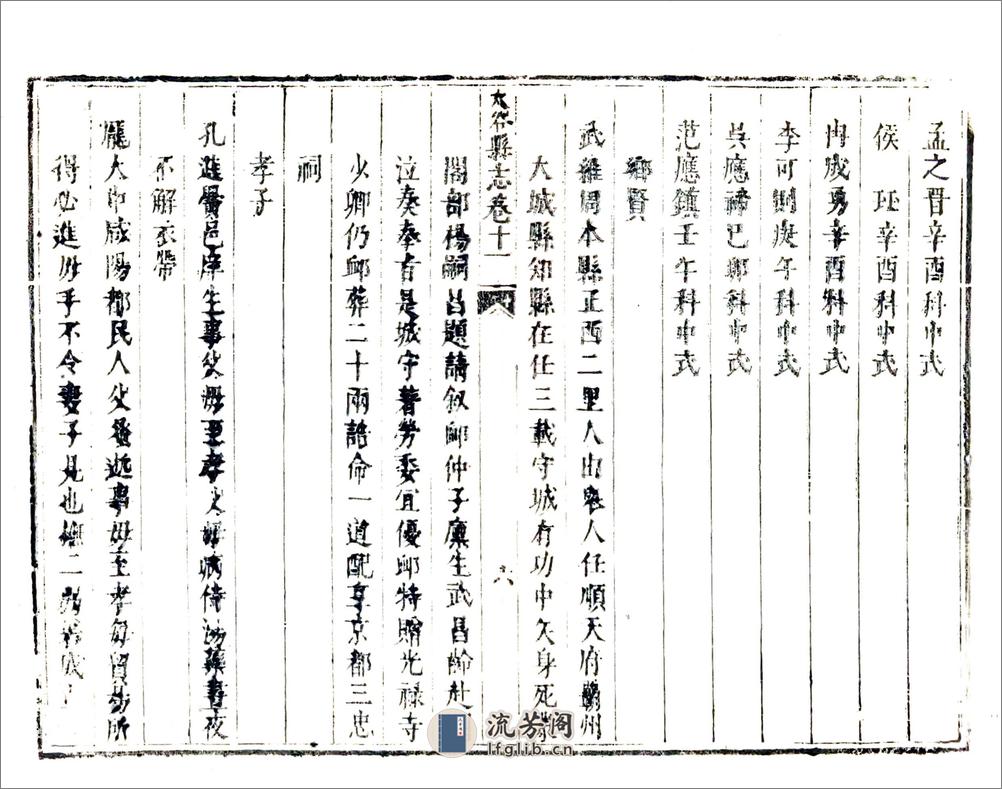 孟之晋辛酉科中式
侯　珏辛酉科中式
冉成勇辛酉科中式
李可 庚午科中式
吳應禘己卯科中式
范應鎮壬午科中式
鄉賢
武維周本縣正酉二里人由 人任順天府 州
大城縣知縣在任三載守城有功中矢身死
太谷縣志卷十一
六
閣部楊嗣昌題請敘卹仲子廩生武昌齡赴
泣奏奉旨是城守著勞委宜優卹特贈光禄寺
少卿仍卹葬二十兩誥命一道配享京都三忠
祠
孝子
孔進 邑庠生事父母至孝父母病侍湯藥晝夜
不解衣帶
龐大巾咸陽郡民人父 逝事母至孝每貿易所
得必進母手不令妻子見也撫二
流芳閣
lfglib.cn